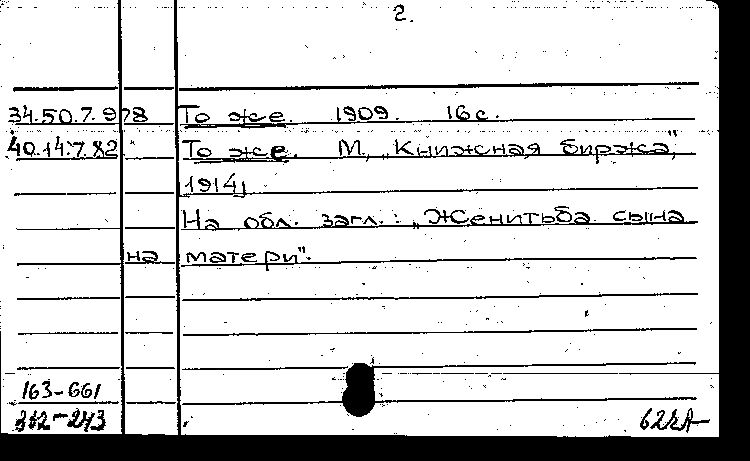 2.
34.50.7.978 То же. 1909. 16 с.
40.14.7.82 То же. М., „Книжная биржа",
[1914]
На обл. загл.: „Женитьба сына
на матери".
163-661
312-243